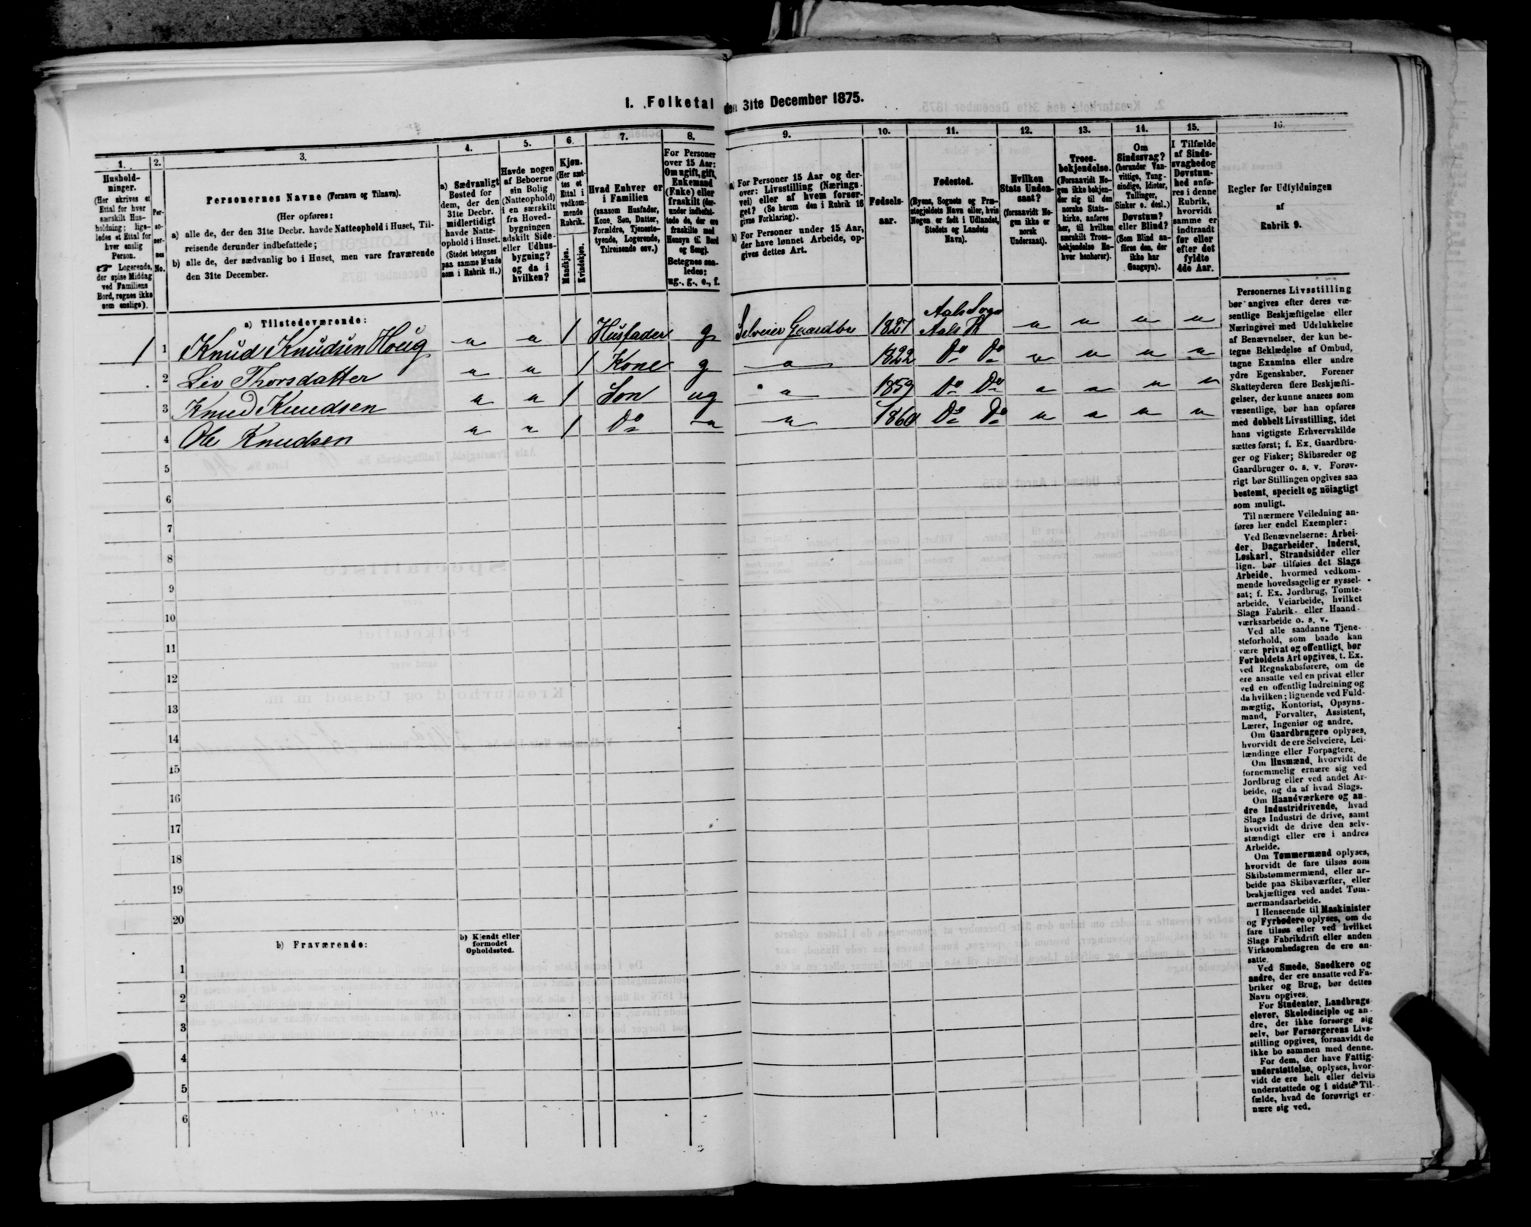 1. Folketal den 31te December 1875.
1. 2. 3. 4. 5. 6. 7. 8. 9. 10. 11. 12. 13. 14. 15. 16.
Hushold-
ninger.
(Her skrives et
Ettal for hver
særskilt Hus-
holdning; lige-
ledes et Ettal for
hver enslig
Person.
☞ Logerende,
der spise Middag
ved Familiens
Bord, regnes ikke
som enslige).
Personernes Navne (Fornavn og Tilnavn).
(Her opføres:
a) alle de, der den 31te Decbr. havde Natteophold i Huset, Til-
reisende derunder indbefattede;
b) alle de, der sædvanlig bo i Huset, men vare fraværende
den 31te December.
a) Sædvanligt
Bosted for
dem, der den
31te Decbr.
midlertidigt
havde Natte-
ophold i Huset.
(Stedet betegnes
paa samme Maade
som i Rubrik 11.)
Havde nogen
af Beboerne
sin Bolig
(Natteophold)
i en særskilt
fra Hoved-
bygningen
adskilt Side-
eller Udhus-
bygning?
og da i
hvilken?
Kjøn.
(Her sæt-
tes et
Ettal i
vedkom-
mende
Rubrik.
Mandkjøn.
Kvindekjøn.
Hvad Enhver er
i Familien
(saasom Husfader,
Kone, Søn, Datter,
Forældre, Tjeneste-
tyende, Logerende,
Tilreisende osv.)
For Personer
over 15 Aar:
Om ugift, gift,
Enkemand
(Enke) eller
fraskilt (der-
under indbefat-
tede de, der ere
fraskilte med
Hensyn til Bord
og Seng).
Betegnes saa-
ledes:
ug., g., e., f.
a) For Personer 15 Aar og der-
over: Livsstilling (Nærings-
vei) eller af hvem forsør-
get? (Se herom den i Rubrik 16
givne Forklaring).
b) For Personer under 15 Aar,
der have lønnet Arbeide, op-
gives dettes Art.
Fødsels-
aar.
Fødested.
(Byens, Sognets og Præ-
stegjeldets Navn eller, hvis
Nogen er født i Udlandet,
Stedets og Landets
Navn).
Hvilken
Stats Under-
saat?
(forsaavidt No-
gen ikke er
norsk
Undersaat).
Troes-
bekjendelse.
(Forsaavidt No-
gen ikke bekjen-
der sig til den
norske Stats-
kirke, anføres
her, til hvilken
særskilt Troes-
bekjendelse En-
hver henhører).
Om
Sindssvag?
(herunder Van-
vittige, Tung-
sindige, Idioter,
Tullinger,
Sinker o. desl.)
Døvstum?
eller Blind?
(Som Blind an-
føres den, der
ikke har
Gangsyn).
I Tilfælde
af Sinds-
svaghed og
Døvstum-
hed anfø-
res i denne
Rubrik,
hvorvidt
samme er
indtraadt
før eller
efter det
fyldte
4de Aar.
Regler for Udfyldningen
af
Rubrik 9.
a) Tilstedeværende:
1 1 Knud Knudsen Houg " " 1 Husfader g Selveier Gaardbr 1827 Aals Sogn Aals P " " " "
2 Liv Thorsdatter " " 1 Kone g " 1822 Do Do " " " "
3 Knud Knudsen " " 1 Søn ug " 1859 Do Do " " " "
4 Ole Knudsen " " 1 Do " " 1860 Do Do " " " "
5
6
7
8
9
10
11
12
13
14
15
16
17
18
19
20
b) Fraværende:
b) Kjendt eller
formodet
Opholdssted.
1
2
3
4
5
6
Personernes Livsstilling
bør angives efter deres væ-
sentlige Beskjæftigelse eller
Næringsvei med Udelukkelse
af Benævnelser, der kun be-
tegne Beklædelse af Ombud,
tagne Examina eller andre
ydre Egenskaber. Forener
Skatteyderen flere Beskjæfti-
gelser, der kunne ansees som
væsentlige, bør han opføres
med dobbelt Livsstilling, idet
hans vigtigste Erhvervskilde
sættes først; f. Ex. Gaardbru-
ger og Fisker; Skibsreder og
Gaardbruger o. s. v. Forøv-
rigt bør Stillingen opgives saa
bestemt, specielt og nøiagtigt
som muligt.
Til nærmere Veiledning an-
føres her endel Exempler:
Ved Benævnelserne: Arbei-
der, Dagarbeider, Inderst,
Løskarl, Strandsidder eller
lign. bør tilføies det Slags
Arbeide, hvormed vedkom-
mende hovedsagelig er syssel-
sat; f. Ex. Jordbrug, Tomte-
arbeide, Veiarbeide, hvilket
Slags Fabrik- eller Haand-
værksarbeide o. s. v.
Ved alle saadanne Tjene-
steforhold, som baade kan
være privat og offentligt, bør
Forholdets Art opgives, f. Ex.
ved Regnskabsførere, om de
ere ansatte ved en privat eller
ved en offentlig Indretning og
da hvilken; lignende ved Fuld-
mægtig, Kontorist, Opsyns-
mand, Forvalter, Assistent,
Lærer, Ingeniør og andre.
Om Gaardbrugere oplyses,
hvorvidt de ere Selveiere, Lei-
lændinge eller Forpagtere.
Om Husmænd, hvorvidt de
fornemmelig ernære sig ved
Jordbrug eller ved andet Ar-
beide, og da af hvad Slags.
Om Haandværkere og an-
dre Industridrivende, hvad
Slags Industri de drive, samt
hvorvidt de drive den selv-
stændigt eller ere i andres
Arbeide.
Om Tømmermænd oplyses,
hvorvidt de fare tilsøs som
Skibstømmermænd, eller ar-
beide paa Skibsværfter, eller
beskjæftiges ved andet Tøm-
mermandsarbeide.
I Henseende til Maskinister
og Fyrbødere oplyses, om de
fare tilsøs eller ved hvilket
Slags Fabrikdrift eller anden
Virksomhedsgren de ere an-
satte.
Ved Smede, Snedkere og
andre, der ere ansatte ved Fa-
briker og Brug, bør dettes
Navn opgives.
For Studenter, Landbrugs-
elever, Skoledisciple og an-
dre, der ikke forsørge sig
selv, bør Forsørgerens Livs-
stilling opgives, forsaavidt de
ikke bo sammen med denne.
For dem, der have Fattig-
understøttelse, oplyses, hvor-
vidt de ere helt eller delvis
understøttede og i sidste Til-
fælde, hvad de forøvrigt er-
nære sig ved.